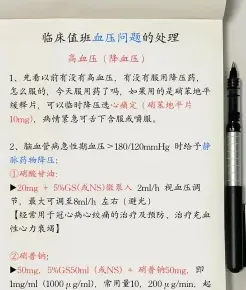 临床值班血压问题的处理
高血压（降血压）
1、先看以前有没有高血压，有没有服用降压药，
怎么服的，今天服用药了吗，如果用的是硝苯地平
缓释片，可以临时降压选心痛定（硝苯地平片
10mg），病情紧急可舌下含服或嚼服。
2、脑血管病急性期血压＞180/120mmHg 时给予静
脉药物降压：
①硝酸甘油：
▶20mg + 5%GS(或NS)微泵入 2ml/h 视血压调
节，最大可调至8ml/h 左右（避光）
【经常用于冠心病心绞痛的治疗及预防、治疗充血
性心力衰竭】
②硝普钠：
▶50mg，5%GS50ml（或NS）+ 硝普钠50mg，即
1mg/ml (1000μg/ml)，常用量10，200μg/min，起